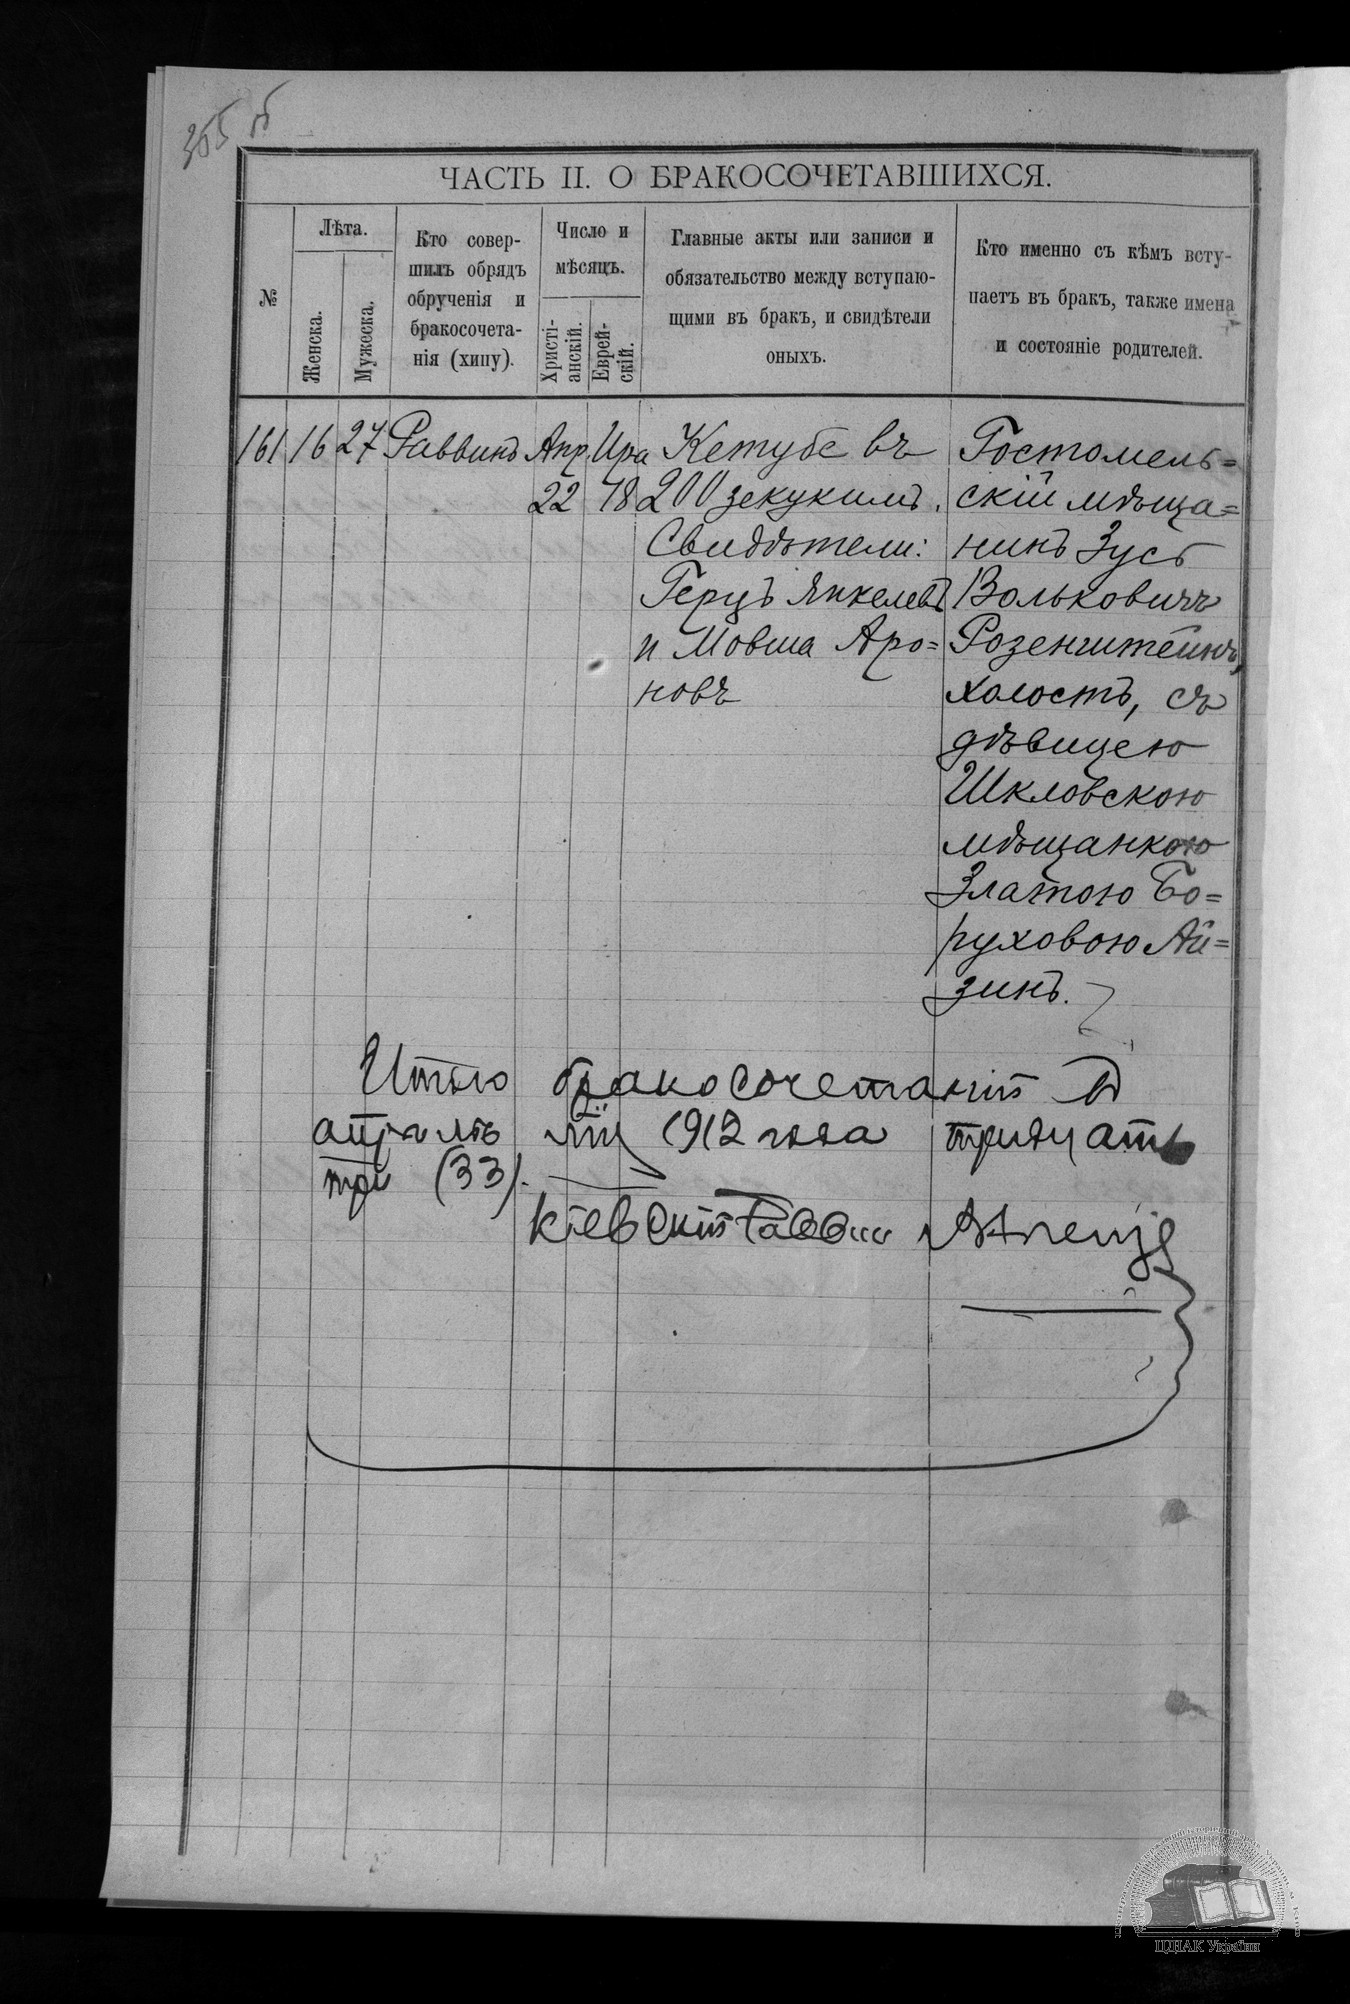 355 об
ЧАСТЬ II. О БРАКОСОЧЕТАВШИХСЯ.
№
Лѣта.
Женска.
Мужеска.
Кто совер-
шилъ обрядъ
обрученія и
бракосочета-
нія (хипу).
Число и
мѣсяцъ.
Христі-
анскій.
Еврей-
скій.
Главные акты или записи и
обязательство между вступаю-
щими въ бракъ, и свидѣтели
оныхъ.
Кто именно съ кѣмъ всту-
паетъ въ бракъ, также имена
и состояніе родителей.
161
16
27
Раввинъ
Апр.
22
Ира
18
Кетубе въ
200 зекукимъ.
Свидѣтели:
Герцъ Янкелевъ
и Мовша Аро=
новъ
Гостомель=
скій мѣща=
нинъ Зусь
Вольковичъ
Розенштейнъ,
холостъ, съ
дѣвицею
Шкловскою
мѣщанкою
Златою Бо=
руховою Ай=
зинъ.
Итого бракосочетаній въ
апрѣлѣ м-цѣ 1912 года тридцать
три (33).
Кіевскій Раввин
ЦДІАК України